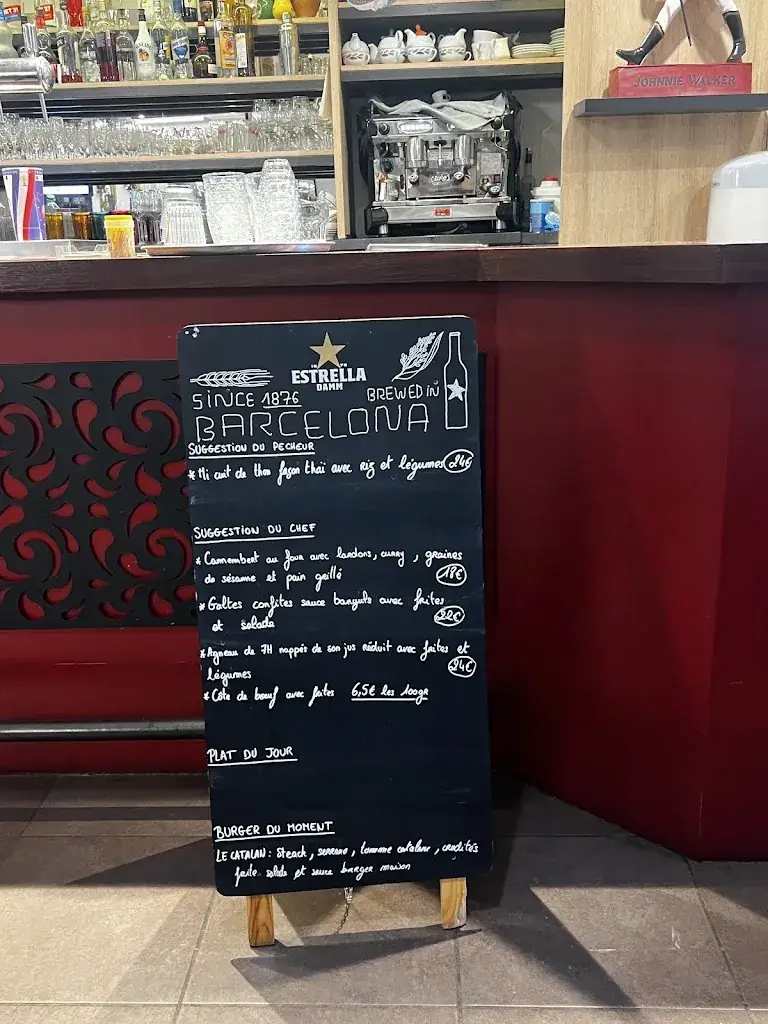 JOHNNIE WALKER
ESTRELLA
DAMM
SINCE 1876
BREWED IN
BARCELONA
SUGGESTION DU PECHEUR
* Mi cuit de thon façon thaï avec riz et légumes 24€
SUGGESTION DU CHEF
* Camembert au four avec lardons, curry, graines
de sésame et pain grillé 18€
* Galtes confites sauce banyuls avec frites
et salade 22€
* Agneau de 7H nappés de son jus réduit avec frites et
légumes 24€
* Côte de bœuf avec frites 6,5€ les 100gr
PLAT DU JOUR
BURGER DU MOMENT
LE CATALAN : Steack, serrano, tomme catalane, crudités
frite salade et sauce burger maison